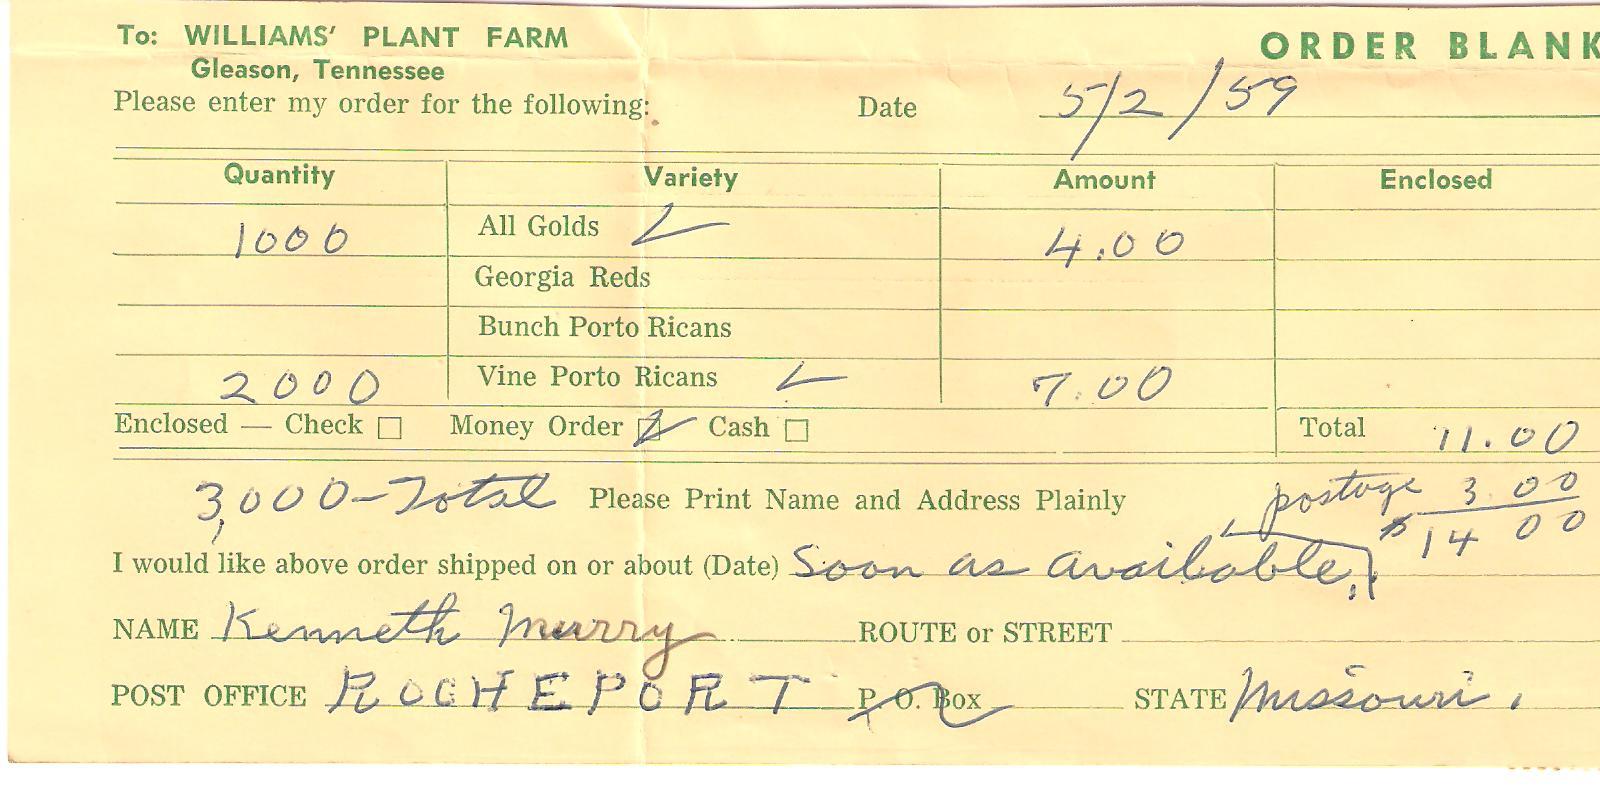 To: WILLIAMS' PLANT FARM
ORDER BLANK
Gleason, Tennessee
Please enter my order for the following:
Date 5/2/59
Quantity Variety Amount Enclosed
1000 All Golds ✓ 4.00
Georgia Reds
Bunch Porto Ricans
2000 Vine Porto Ricans ✓ 7.00
Enclosed — Check ☐ Money Order ☑ Cash ☐ Total 11.00
3,000-Total Please Print Name and Address Plainly postage 3 00
$14 00
I would like above order shipped on or about (Date) Soon as available.
NAME Kenneth Murry ROUTE or STREET
POST OFFICE ROCHEPORT P. O. Box STATE Missouri.